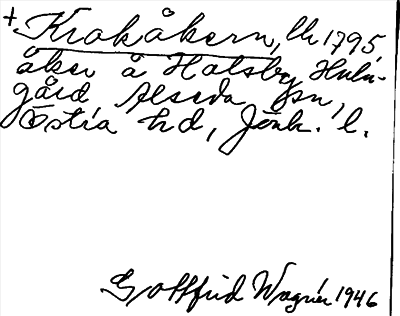 +. Krokåkern, lh 1795
åker å Holsby Hulu-
gård Alseda sn,
Östra hd, Jönk. l.
Gottfrid Wagnér 1946